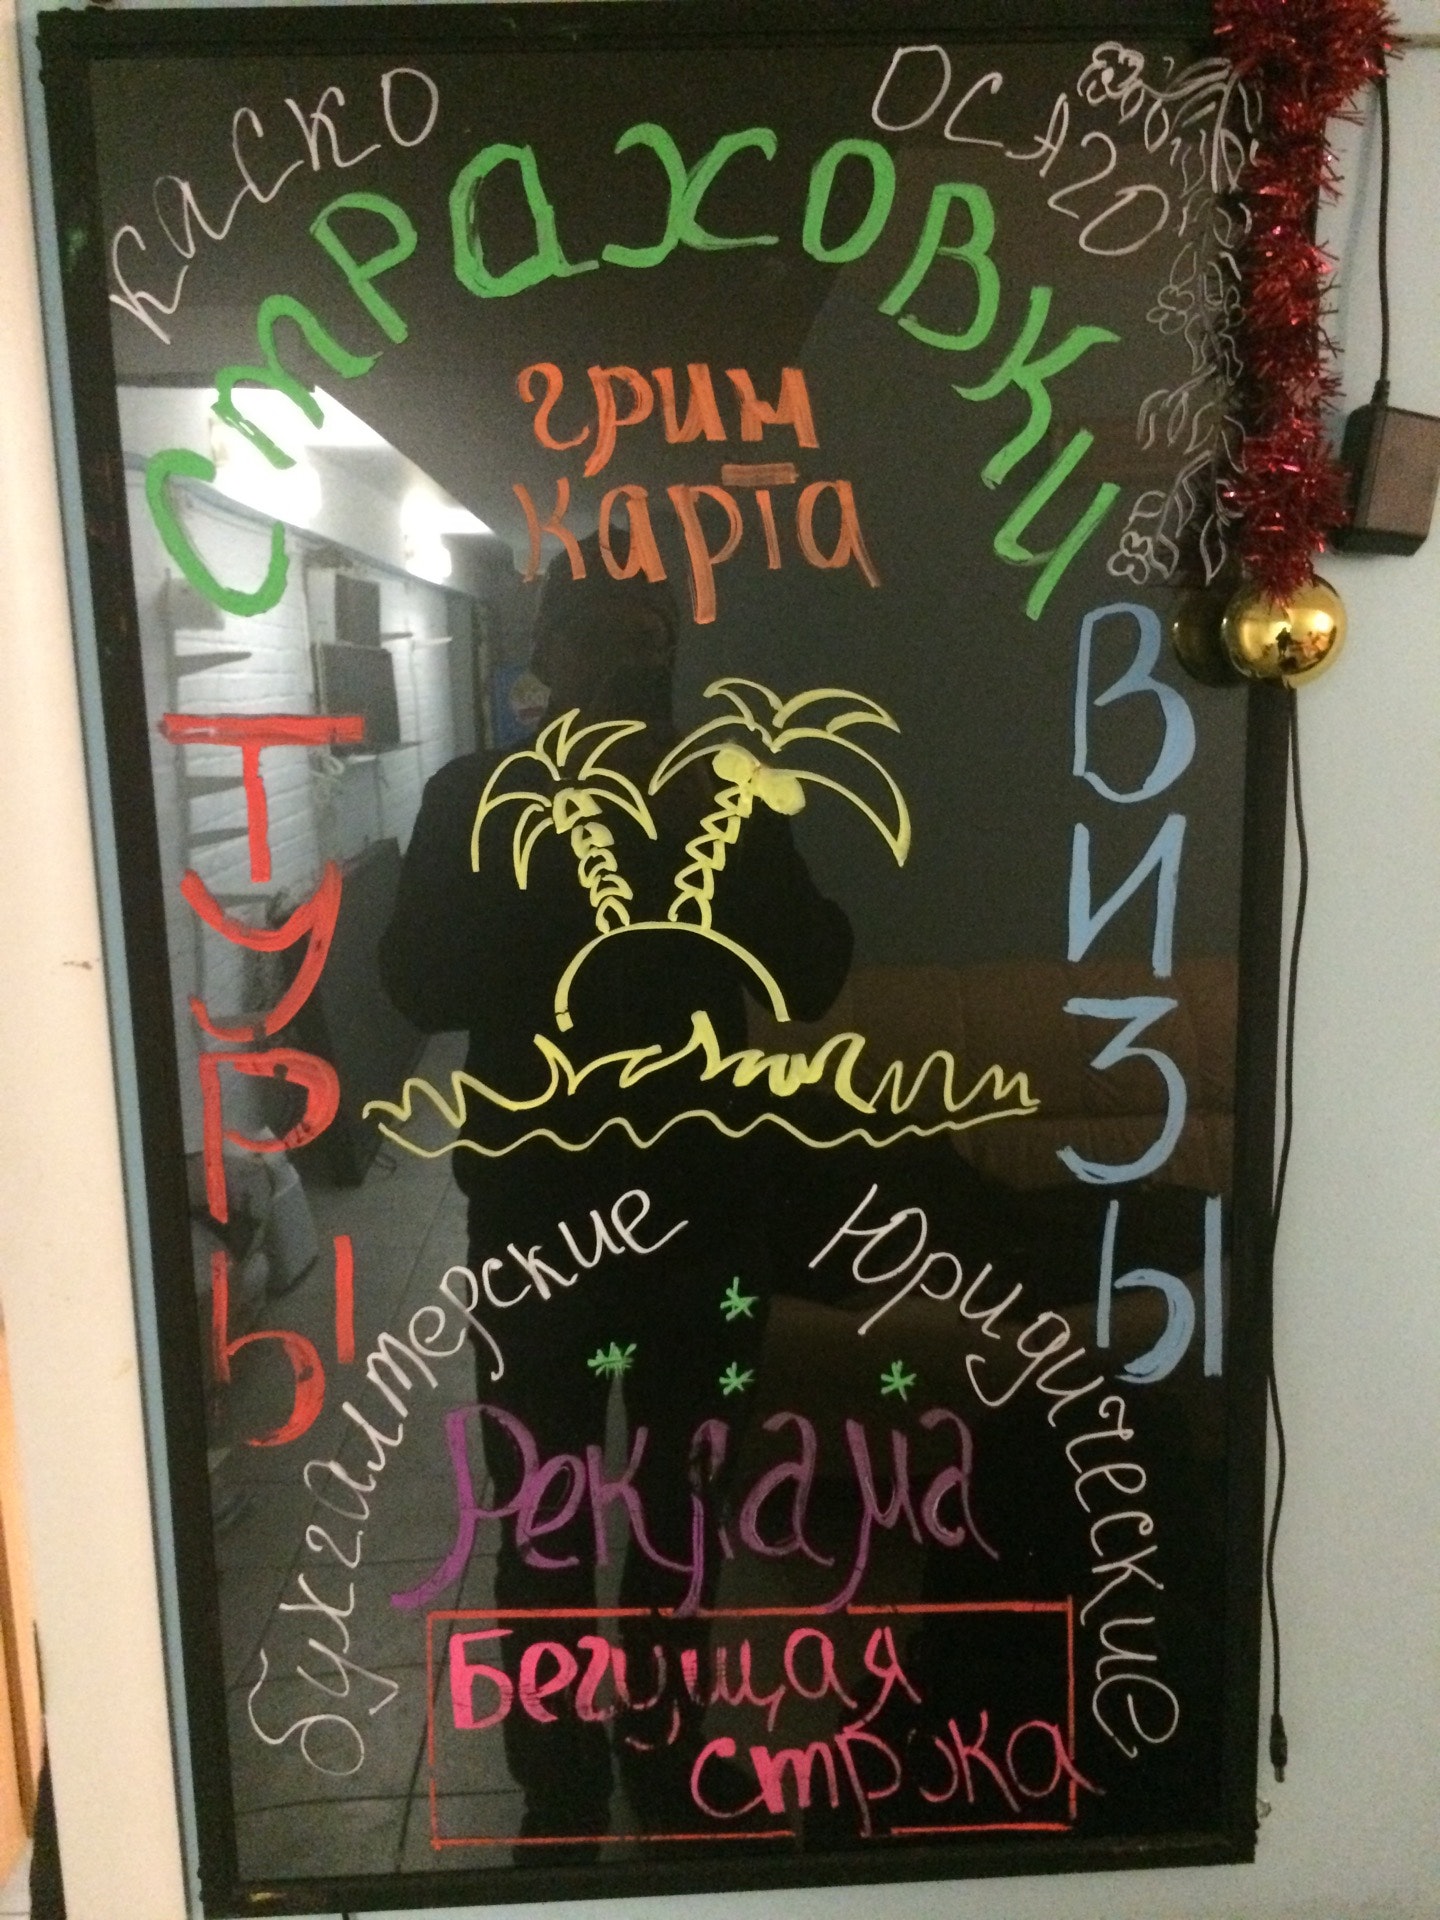 каско
ОСАГО
Страховки
грин
карта
Туры
Визы
бухгалтерские
Юридические
Реклама
Бегущая
строка